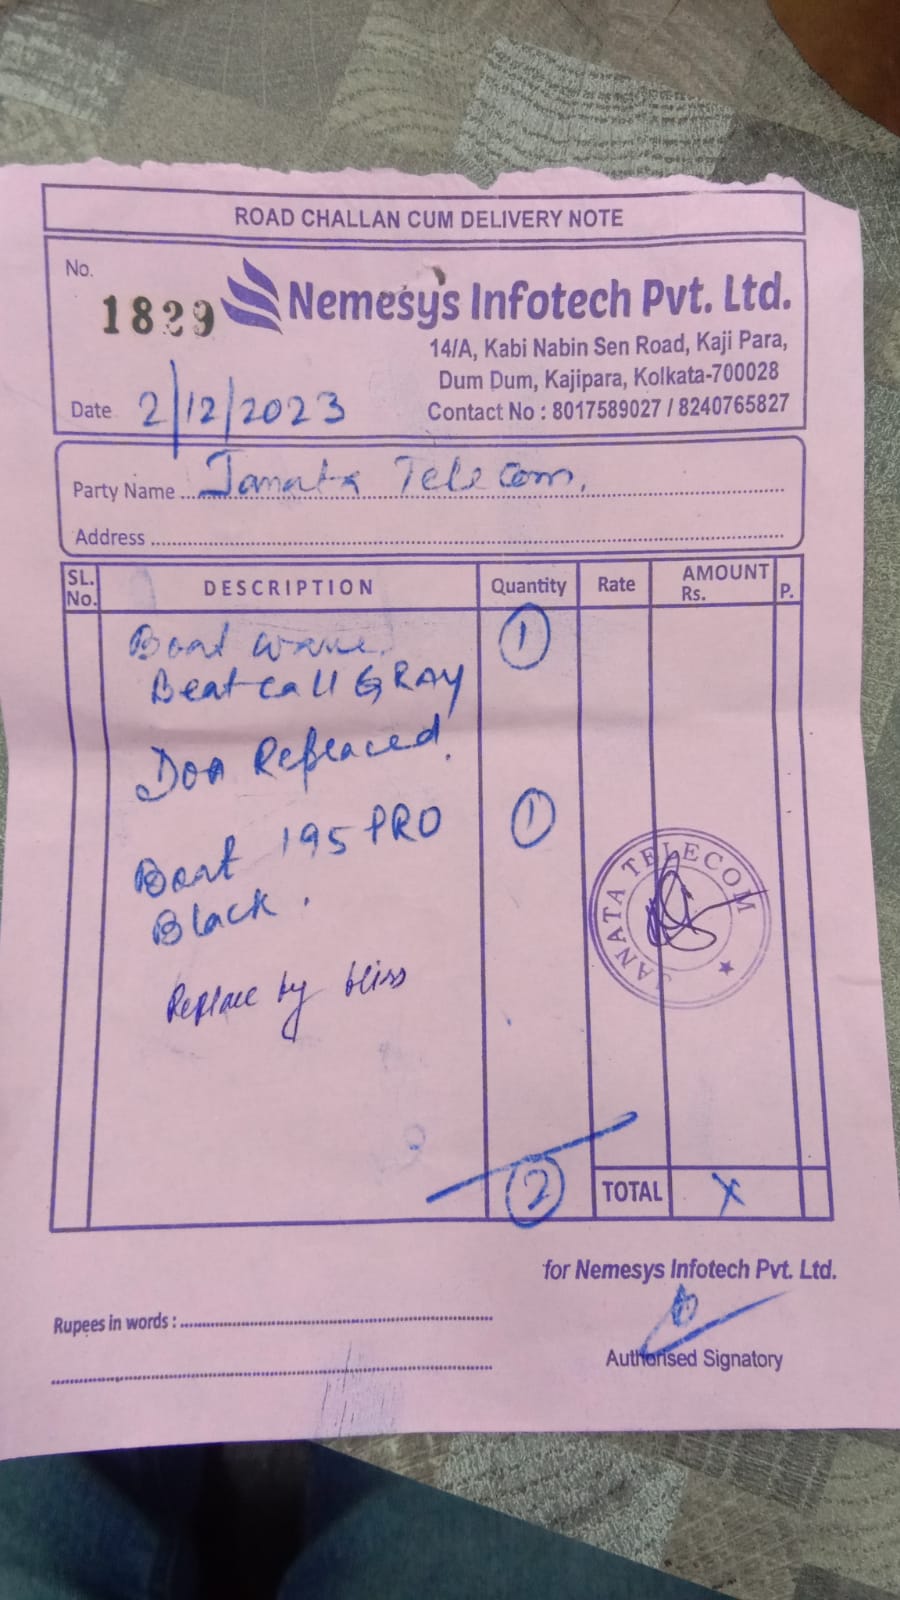 ROAD CHALLAN CUM DELIVERY NOTE
No.
1829
Nemesys Infotech Pvt. Ltd.
14/A, Kabi Nabin Sen Road, Kaji Para,
Dum Dum, Kajipara, Kolkata-700028
Contact No : 8017589027 / 8240765827
Date 2/12/2023
Party Name Janata Telecom,
Address
SL. No. DESCRIPTION Quantity Rate AMOUNT Rs. P.
Boat wave 1
Beat call GRAY
Doa Replaced.
Boat 195 PRO 1
Black.
JANATA TELECOM
Replace by bliss
2 TOTAL X
for Nemesys Infotech Pvt. Ltd.
Rupees in words :
Authorised Signatory